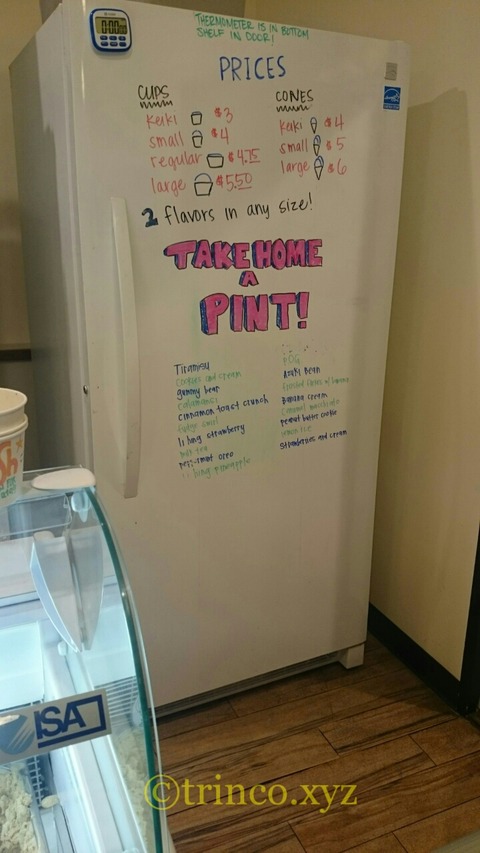 THERMOMETER IS IN BOTTOM
SHELF IN DOOR!
PRICES
CUPS
keiki $3
small $4
regular $4.75
large $5.50
CONES
keiki $4
small $5
large $6
2 flavors in any size!
TAKE HOME
A
PINT!
Tiramisu
cookies and cream
gummy bear
calamansi
cinnamon toast crunch
fudge swirl
li hing strawberry
peppermint oreo
li hing pineapple
POG
Azuki Bean
Banana cream
caramel macchiato
peanut butter cookie
strawberries and cream
ISA
©trinco.xyz